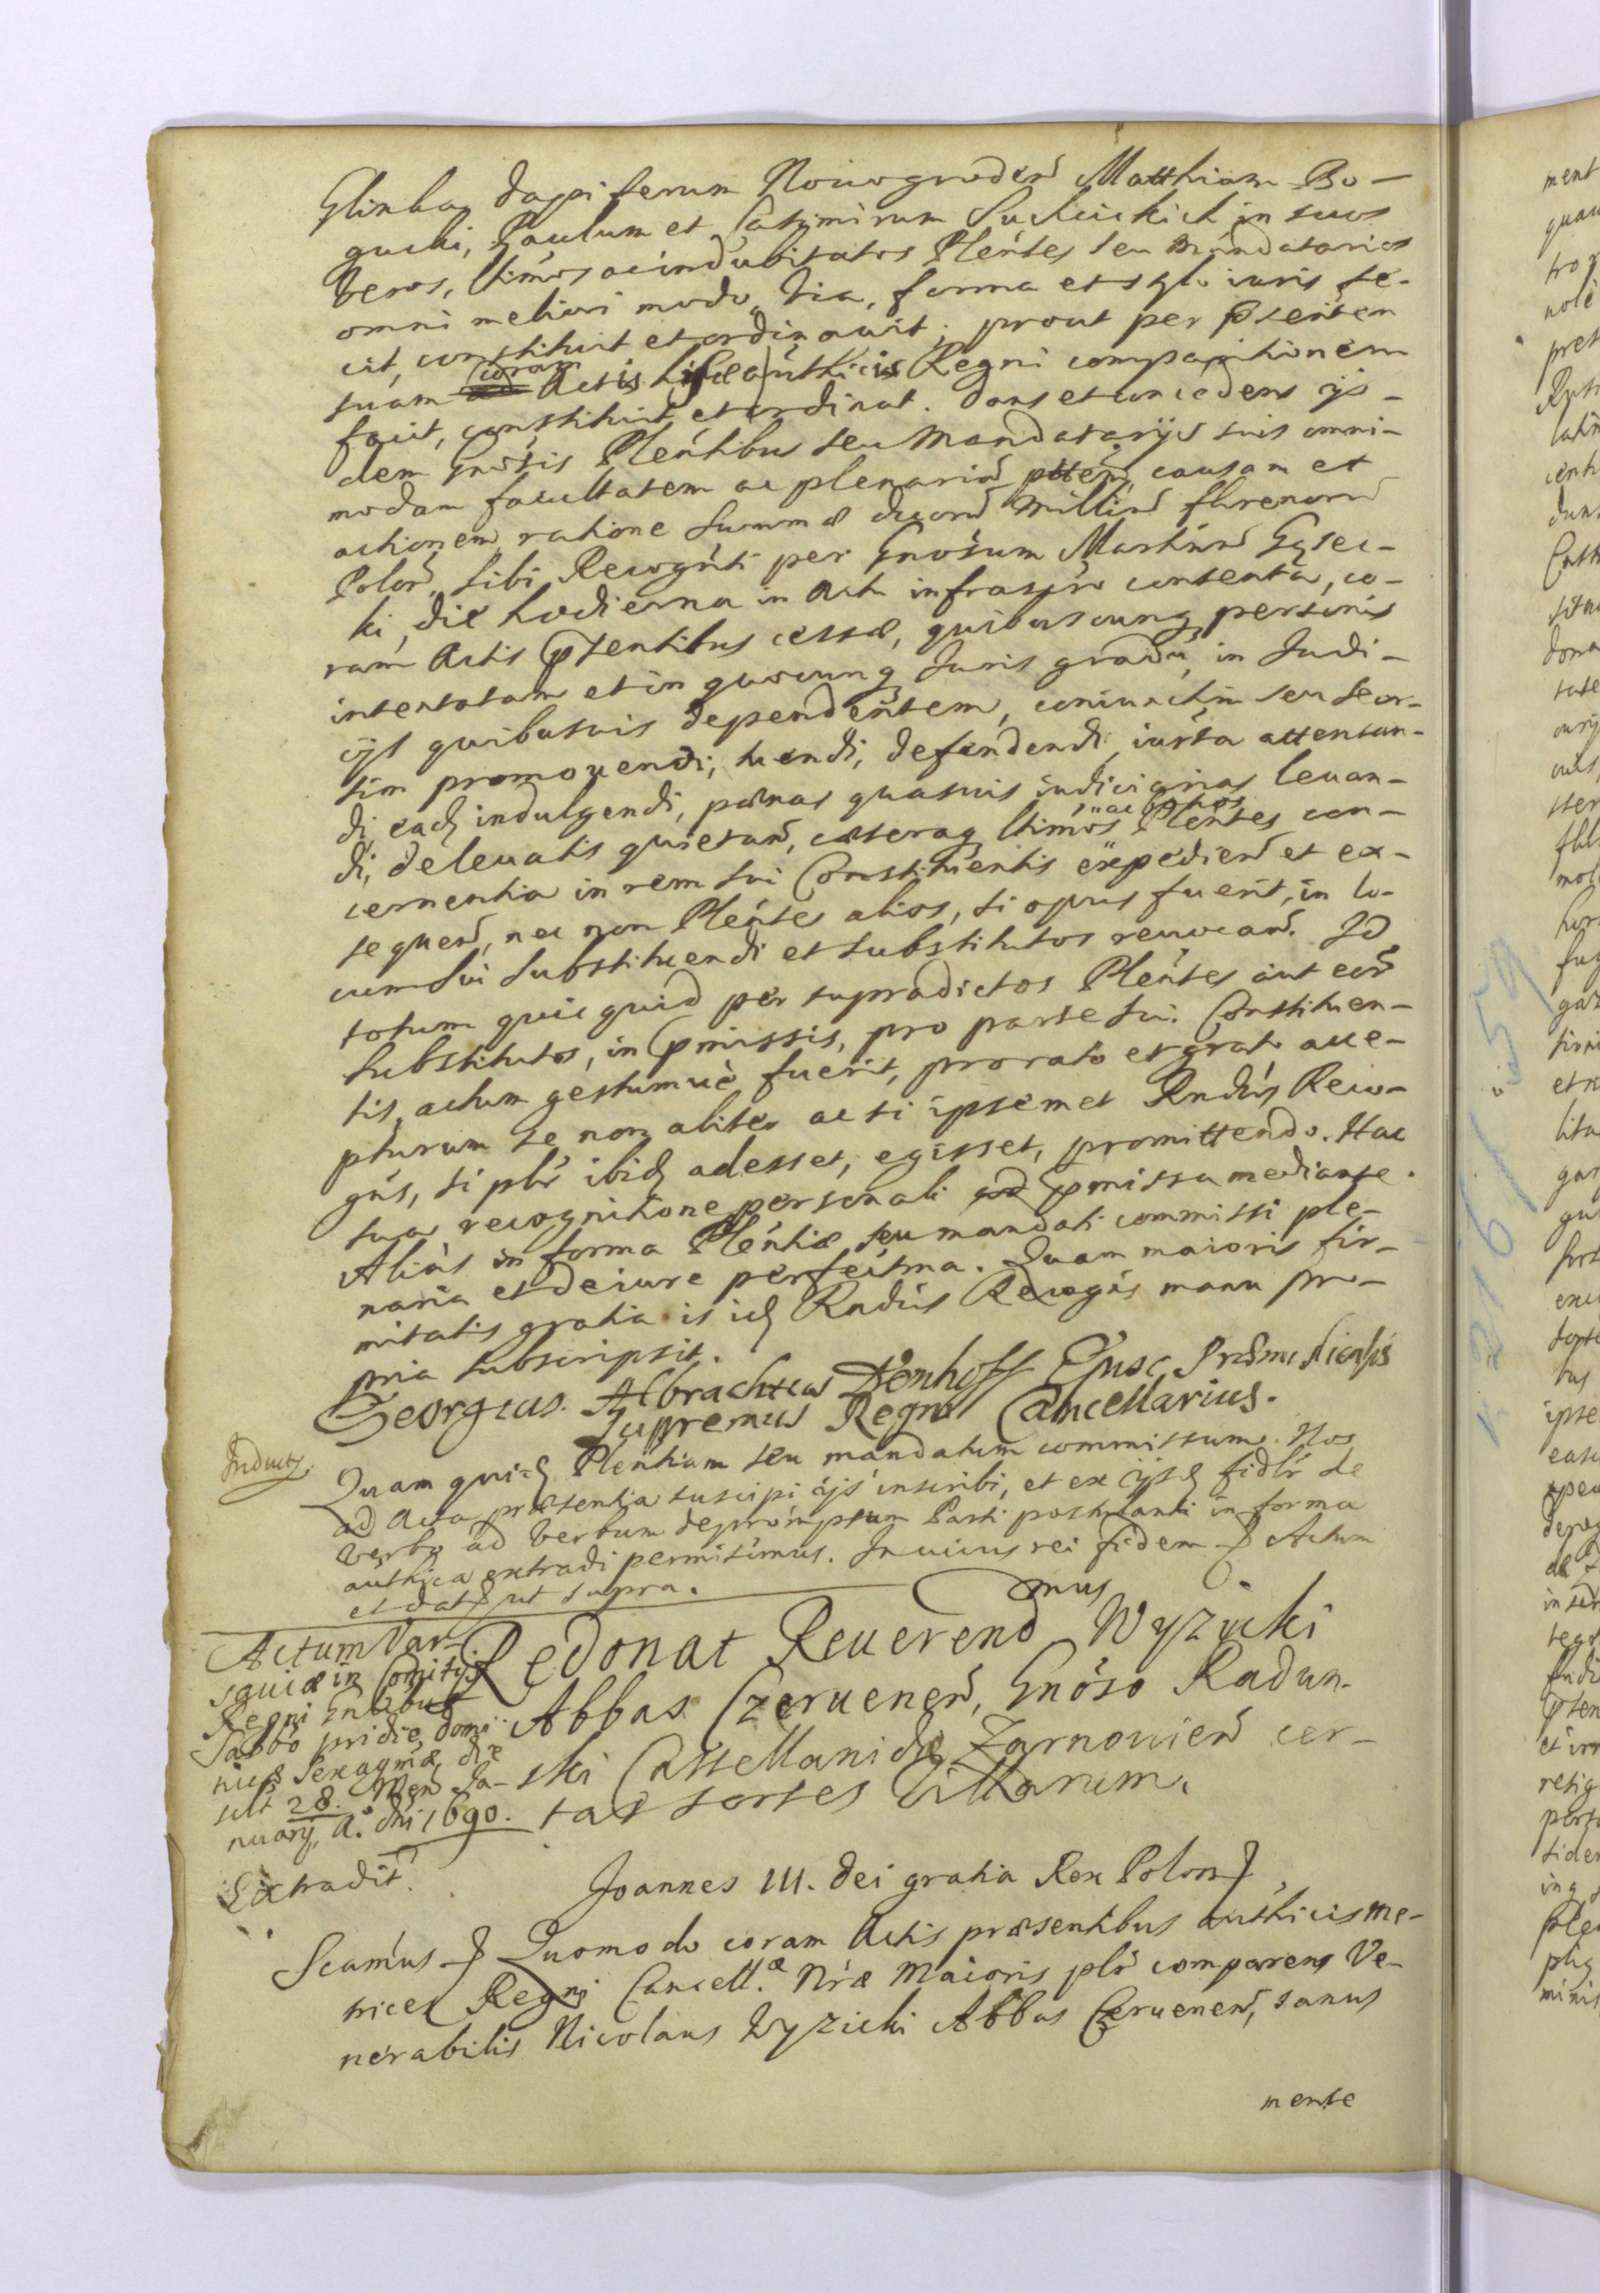 Glinka, dapiferum Nowogroden Matthiam Bo-
gucki, Paulum et Casimirum Suchcickich in suos
veros, ltimos ac indubitatos Plentes seu Mandatarios
omni meliori modo, via, forma et stylo iuris fe-
cit, constituit et ordinavit; prout per psentem
suam coram Actis hisce authicis Regni comparitionem
facit, constituit et ordinat. Dans et concedens ijs-
dem Gnosis Plentibus seu Mandatarijs suis omni-
modam facultatem ac plenariam pttem, causam et
actionem ratione Summæ duorum Millium florenorum
Polon, sibi Recognti per Gnosum Martinum
ki, die hodierna in Actu infrascripto contenta, co-
ram Actis psentibus cessæ, quibuscunq personis
intentatam et in quocunq Juris gradu, in Judi-
cijs quibusvis dependentem, coniunctim seu seor-
sim promovendi, tuendi, defendendi, iurta attentan-
di eadq indulgendi, pænas quasvis iudiciarias levan-
di, de levatis quietand, cæteraq ltimos ac bonos Plentes con-
cernentia in rem sui Constituentis expediend et ex-
sequend, nec non Plentes alios, si opus fuerit, in lo-
cum sui substituendi et substitutos revocand. Id
totum quicquid per supradictos Plentes aut eor
substitutos, in pmissis, pro parte sui Constituen-
tis, actum gestumvè fuerit, pro rato et grato acce-
pturum se non aliter ac si ipsemet Rndus Reco-
gns, si plr ibidq adesset, egisset, promittendo. Hac
sua recognitione personali ad pmissa mediante.
Aliàs in forma Plentiæ seu mandati commissi ple-
naria et de iure perfectma. Quam maioris fir-
mitatis gratia is idq Rndus Recogns manu pro-
pria subscripsit.
Georgius Albrachtus Denhoff Epusc Præmisliensis
Supremus Regni Cancellarius.
Inductq.
Quam quidq Plentiam seu mandatum commissum Nos
ad Acta præsentia suscipi ijs inscribi, et ex ijsdq fidlr de
verbo ad verbum depromptum Parti postulanti in forma
authica extradi permisimus. In cuius rei fidem Actum
et dat ut supra.
Actum Var-
saviæ in Comitijs
Regni Gnlibus
Sabbo pridie domi-
nicæ Sexagmæ, die
scilt 28. Men Ja-
nuarij, A. dni 1690.
Extradit.
Redonat Reverendmus Wyzicki
Abbas Czervenen, Gnoso Radun-
ski Castellanidæ Zarnovien cer-
tas sortes Villarum.
Joannes III. Dei gratia Rex Polon
Scamus Quomodo coram Actis præsentibus authicis Me-
trices Regni Cancell.æ Nræ Maioris plr comparens Ve-
nerabilis Nicolaus Wyzicki Abbas Czervenen, sanus
mente